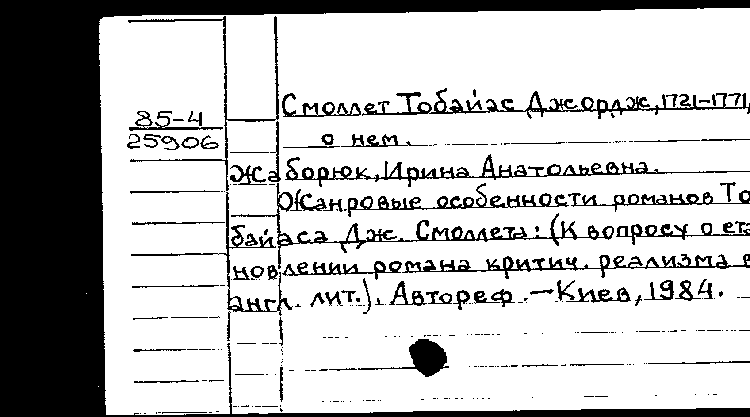 Смоллет Тобайас Джордж, 1721–1771,
о нем.
85-4
25906
Жаборюк, Ирина Анатольевна.
Жанровые особенности романов То
байаса Дж. Смоллета: (К вопросу о ста
новлении романа критич. реализма в
англ. лит.). Автореф. — Киев, 1984.